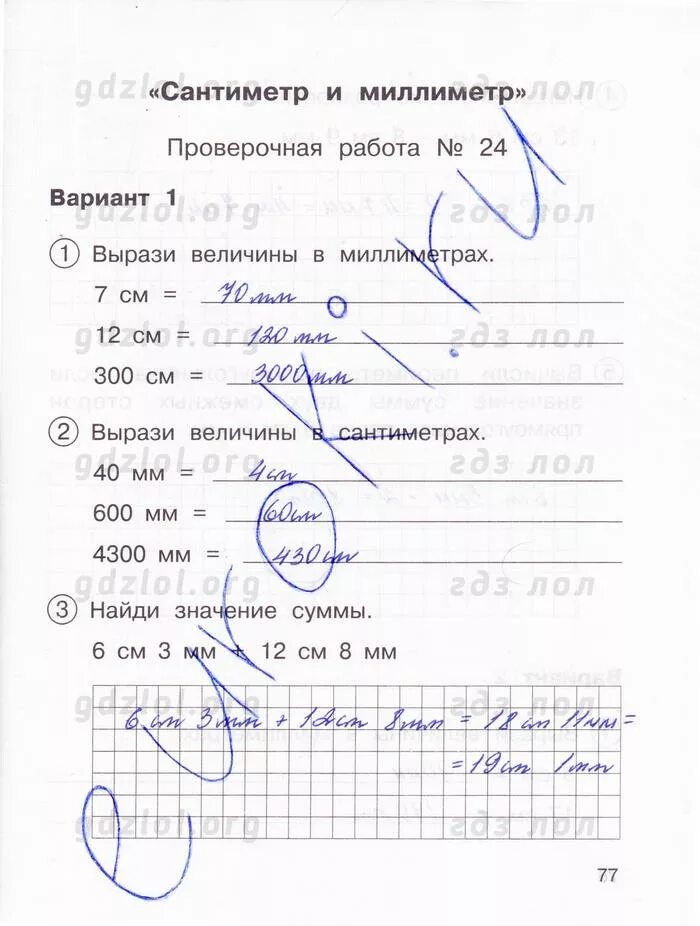 «Сантиметр и миллиметр»
Проверочная работа № 24
Вариант 1
1 Вырази величины в миллиметрах.
7 см = 70 мм
12 см = 120 мм
300 см = 3000 мм
2 Вырази величины в сантиметрах.
40 мм = 4 см
600 мм = 60 см
4300 мм = 430 см
3 Найди значение суммы.
6 см 3 мм + 12 см 8 мм
6 см 3 мм + 12 см 8 мм = 18 см 11 мм =
= 19 см 1 мм
77
gdzlol.org гдз лол
gdzlol.org гдз лол
gdzlol.org гдз лол
gdzlol.org гдз лол
gdzlol.org гдз лол
gdzlol.org гдз лол
gdzlol.org гдз лол
euroki.ru